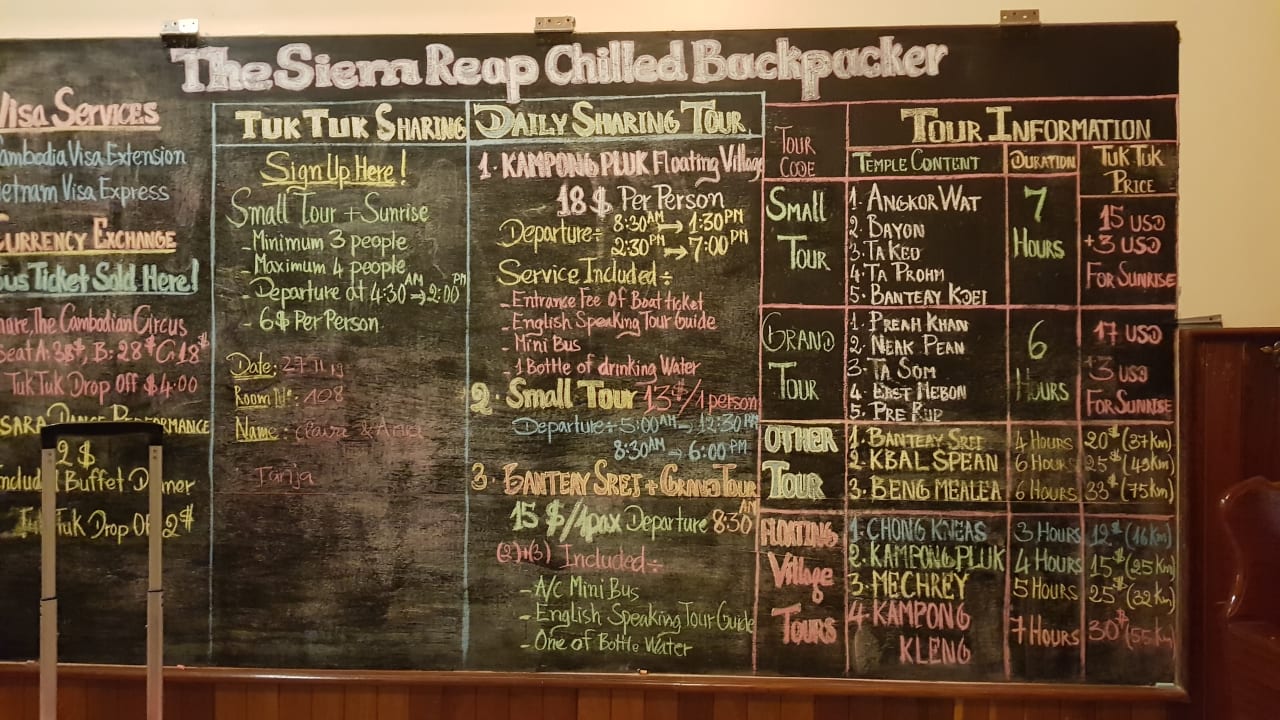 The Siem Reap Chilled Backpacker
Visa Services
Cambodia Visa Extension
Vietnam Visa Express
Currency Exchange
Bus Ticket Sold Here!
The Cambodian Circus
Seat A: 38$, B: 28$ C: 18$
TukTuk Drop Off $4.00
Dance Performance
2$
Buffet
Tuk Drop 2$
Tuk Tuk Sharing
Sign Up Here!
Small Tour + Sunrise
- Minimum 3 people
- Maximum 4 people
- Departure at 4:30AM → 2:00PM
- 6$ Per Person
Date: 27 11 19
Room Nº: 108
Name: Claire &
Tanja
Daily Sharing Tour
1. KAMPONG PLUK Floating Village
18 $ Per Person
Departure÷ 8:30AM → 1:30PM
2:30PM → 7:00PM
Service Included÷
- Entrance Fee Of Boat ticket
- English Speaking Tour Guide
- Mini Bus
- 1 Bottle of drinking Water
2. Small Tour 13$/1person
Departure÷ 5:00AM → 12:30PM
8:30AM → 6:00PM
3. Banteay Srei + Grand Tour
15 $/1pax Departure 8:30AM
(2)+(3) Included÷
- A/C Mini Bus
- English Speaking Tour Guide
- One of Bottle Water
Tour Information
Tour Code
Temple Content
Duration
Tuk Tuk Price
Small Tour
1. Angkor Wat
2. Bayon
3. Ta Keo
4. Ta Prohm
5. Banteay Kdei
7 Hours
15 USD
+3 USD
For Sunrise
Grand Tour
1. Preah Khan
2. Neak Pean
3. Ta Som
4. East Mebon
5. Pre Rup
6 Hours
17 USD
+3 USD
For Sunrise
Other Tour
1. Banteay Srei 4 Hours 20$ (37km)
2. KBAL SPEAN 6 Hours 25$ (49km)
3. BENG MEALEA 6 Hours 33$ (75km)
Floating Village Tours
1. CHONG KNEAS 3 Hours 12$ (16km)
2. KAMPONG PLUK 4 Hours 15$ (25 km)
3. MECHREY 5 Hours 25$ (32 km)
4. KAMPONG KLENG 7 Hours 30$ (55km)